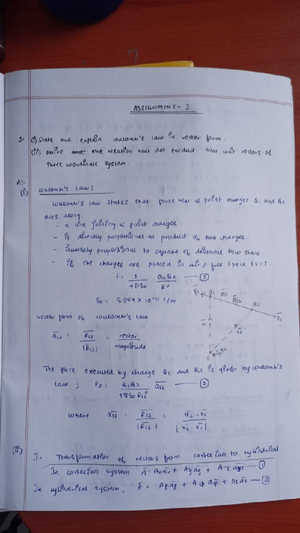 ASSIGNMENT - I
1. (i) State and explain coulomb's law in vector form.
(ii) Derive the relation b/w dot product b/w unit vectors of
three coordinate system.
A:-
(i) coulomb's Law:
coulomb's law states that force b/w 2 point charges Q1 and Q2
acts along
- a line joining 2 point charges
- is directly proportional to product of two charges.
- inversely proportional to square of distance b/w them
- if the charges are placed in air / free space
F = 1/4πε0 Q1Q2/R² ①
ε0 = 8.854 x 10⁻¹² F/m
vector form of coulomb's law
a12 = R12/|R12| = vector/magnitude
The force executed by charge Q1 and Q2 is given by coulomb's
law ; F2 = Q1Q2/4πε0R12² a12 ②
where a12 = R12/|R12| = r2-r1/|r2-r1|
(ii) 1. Transformation of vectors from cartesian to cylindrical
In cartesian system
In cylindrical system,